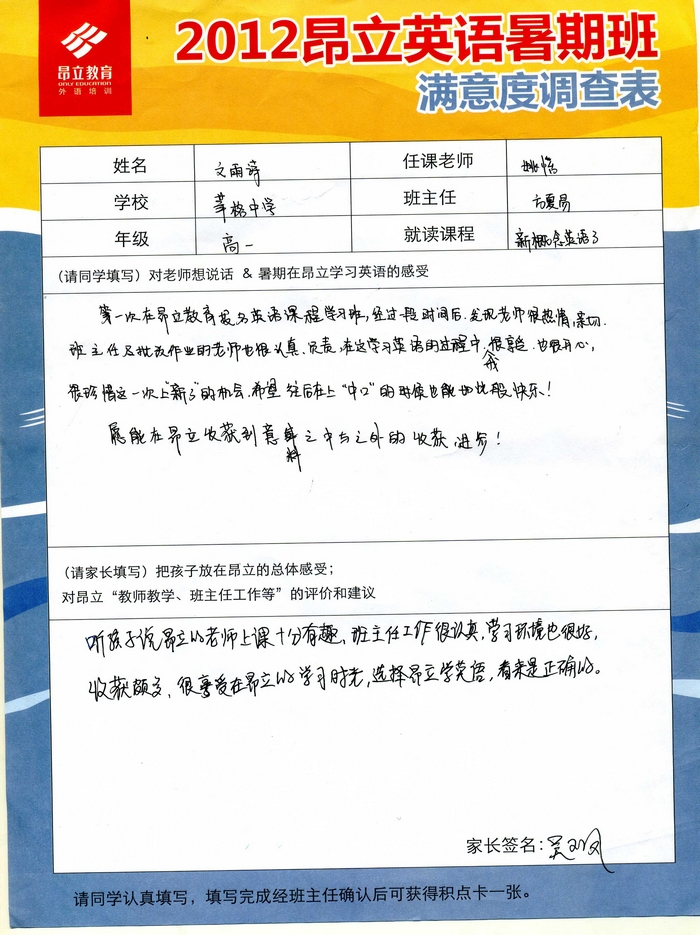 昂立教育
ONLY EDUCATION
外语培训
2012昂立英语暑期班
满意度调查表
姓名 文雨诗 任课老师 姚恺
学校 莘格中学 班主任 方夏易
年级 高一 就读课程 新概念英语3
(请同学填写)对老师想说话 & 暑期在昂立学习英语的感受
第一次在昂立教育报名英语课程学习班,经过一段时间后.发现老师很热情,亲切.
班主任及批改作业的老师也很认真、负责,在这学习英语的过程中,我很享受.也很开心,
很珍惜这一次上"新3"的机会.希望往后在上"中口"的时候也能如此般快乐!
愿能在昂立收获到意料之中与之外的收获.进步!
(请家长填写)把孩子放在昂立的总体感受;
对昂立“教师教学、班主任工作等”的评价和建议
听孩子说昂立的老师上课十分有趣、班主任工作很认真.学习环境也很好,
收获颇多、很享受在昂立的学习时光,选择昂立学英语,看来是正确的。
家长签名:
请同学认真填写,填写完成经班主任确认后可获得积点卡一张。